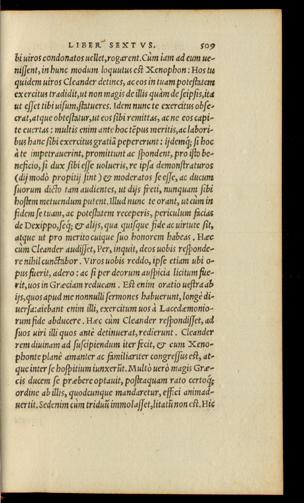 LIBER SEXTVS. 509
bi uiros condonatos uellet, rogarent. Cùm iam ad eum ue-
nissent, in hunc modum loquutus est Xenophon: Hos tu
quidem uiros Cleander detines, ac eos in tuam potestatem
exercitus tradidit, ut non magis de illis quàm de seipsis, ita
ut esset tibi uisum, statueres. Idem nunc te exercitus obse-
crat, atque obtestatur, ut eos sibi remittas, ac ne eos capi-
te cuertas: multis enim ante hoc tẽpus meritis, ac labori-
bus hanc sibi exercitus gratiã pepererunt: ijdemq́; si hoc
à te impetrauerint, promittunt ac spondent, pro isto be-
neficio, si dux sibi esse uolueris, re ipsa demonstraturos
(dij modò propitij sint) & moderatos se esse, ac ducum
suorum dicto tam audientes, ut dijs freti, nunquam sibi
hostem metuendum putent. Illud nunc te orant, ut cùm in
fidem se tuam, ac potestatem receperis, periculum facias
de Dexippo, seq́; & alijs, qua quisque fide ac uirtute sit,
atque ut pro merito cuique suo honorem habeas. Hæc
cùm Cleander audisset, Per, inquit, deos uobis responde-
re nihil cunctabor. Viros uobis reddo, ipse etiam ubi o-
pus fuerit, adero: ac si per deorum auspicia licitum fue-
rit, uos in Græciam reducam. Est enim oratio uestra ab
ijs, quos apud me nonnulli sermones habuerunt, longè di-
uersa: aiebant enim illi, exercitum uos à Lacedæmonio-
rum fide abducere. Hæc cùm Cleander respondisset, ad
suos uiri illi quos antè detinuerat, redierunt. Cleander
rem diuinam ad suscipiendum iter fecit, & cum Xeno-
phonte planè amanter ac familiariter congressus est, at-
que inter se hospitium iunxerũt. Multò uerò magis Græ-
cis ducem se præbere optauit, postquam rato certoq́;
ordine ab illis, quodcunque mandaretur, effici animad-
uertit. Sed enim cùm triduũ immolasset, litatũ non est. Hic